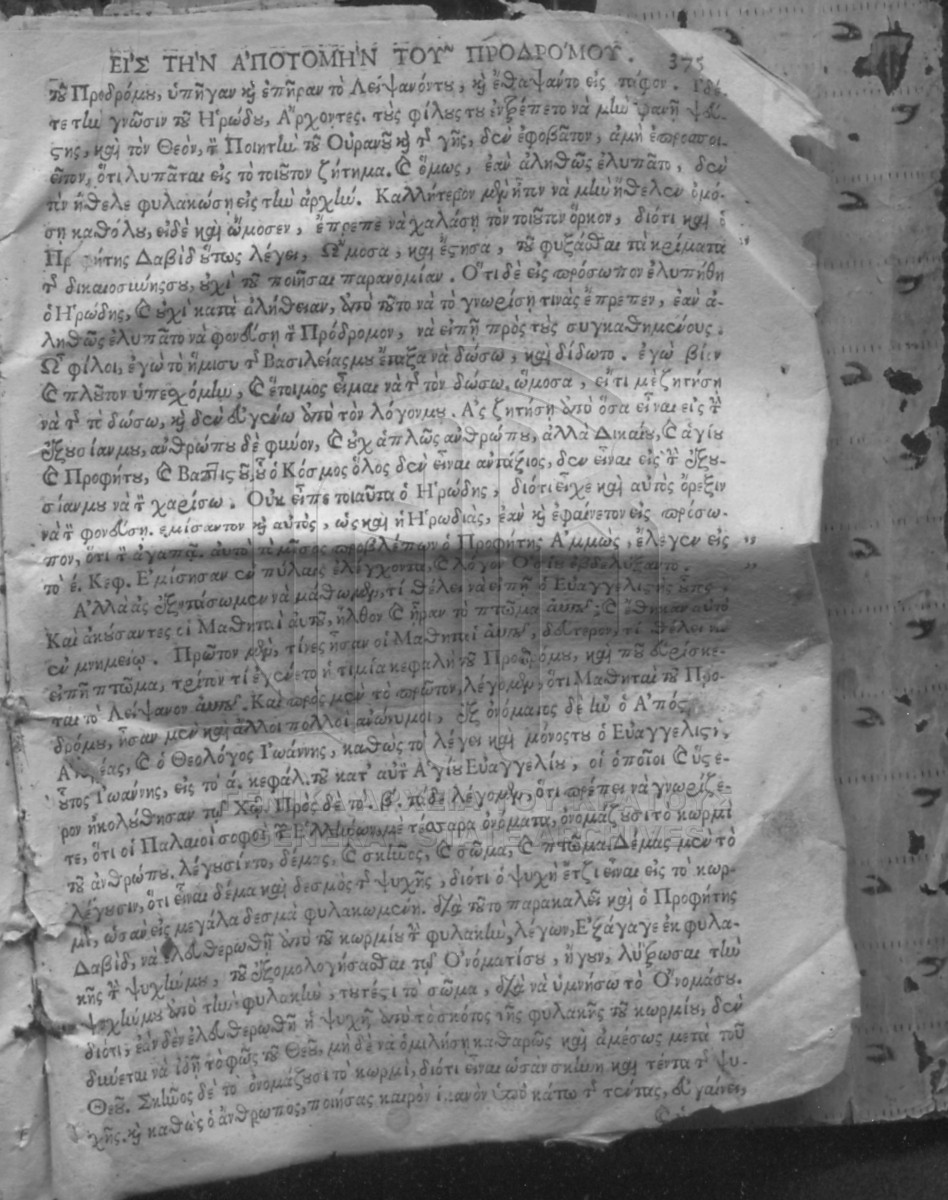 ΕΙΣ ΤΗΝ ΑΠΟΤΟΜΗΝ ΤΟΥ ΠΡΟΔΡΟΜΟΥ. 375
τοῦ Προδρόμου, ὑπῆγαν καὶ ἐπῆραν τὸ Λείψανόντου, καὶ ἔθαψαντο εἰς τάφον.
τε τὴν γνῶσιν τοῦ Ἡρώδου, Ἄρχοντες. τοὺς φίλους του ἐντρέπετο νὰ μὴν φανῇ ψεύ-
στης, καὶ τὸν Θεὸν, τὸν Ποιητὴν τοῦ Οὐρανοῦ καὶ τῆς γῆς, δὲν ἐφοβᾶτον, ἀμὴ ἐπροσποι-
εῖτον, ὅτι λυπᾶται εἰς τὸ τοιοῦτον ζήτημα. Καὶ ὅμως, ἐὰν ἀληθῶς ἐλυπᾶτο, δὲν
τὸν ἤθελε φυλακώσῃ εἰς τὴν ἀρχήν. Καλλήτερον μὲν ἦτον νὰ μὴν ἤθελεν ὀμό-
σῃ καθόλου, εἰδὲ καὶ ὤμοσεν, ἔπρεπε νὰ χαλάσῃ τὸν τοιοῦτον ὅρκον, διότι καὶ ὁ
Προφήτης Δαβὶδ οὕτως λέγει, Ὤμοσα, καὶ ἔστησα, τοῦ φυλάξασθαι τὰ κρίματα
τῆς δικαιοσύνηςσου, οὐχὶ τοῦ ποιῆσαι παρανομίαν. Ὅτι δὲ εἰς πρόσωπον ἐλυπήθη
ὁ Ἡρώδης, καὶ οὐχὶ κατὰ ἀλήθειαν, ἀπὸ τοῦτο νὰ τὸ γνωρίσῃ τινὰς ἔπρεπεν, ἐὰν ἀ-
ληθῶς ἐλυπᾶτο νὰ φονεύσῃ τὸν Πρόδρομον, νὰ εἰπῇ πρὸς τοὺς συγκαθημένους.
Ὦ φίλοι, ἐγὼ τὸ ἥμισυ τῆς Βασιλείαςμου ἔταξα νὰ δώσω, καὶ δίδωτο. ἐγὼ βίον
καὶ πλοῦτον ὑπεσχόμην, καὶ ἕτοιμος εἶμαι νὰ τῆς τὸν δώσω. ὤμοσα, εἴτι μὲ ζητήσῃ
νὰ τῆς τὸ δώσω, καὶ δὲν εὐγένω ἀπὸ τὸν λόγονμου. Ἂς ζητήσῃ ἀπὸ ὅσα εἶναι εἰς τὴν
ἐξουσίανμου, ἀνθρώπου δὲ φόνον, καὶ οὐχ ἁπλῶς ἀνθρώπου, ἀλλὰ Δικαίου, καὶ ἁγίου
καὶ Προφήτου, καὶ Βαπτιστοῦ, οὗ ὁ Κόσμος ὅλος δὲν εἶναι αντάξιος, δὲν εἶναι εἰς τὴν ἐξου-
σίανμου νὰ τὸν χαρίσω. Οὐκ εἶπε τοιαῦτα ὁ Ἡρώδης, διότι εἶχε καὶ αὐτὸς ὄρεξιν
νὰ τὸν φονεύσῃ. ἐμίσαντον καὶ αὐτὸς, ὡς καὶ ἡ Ἡρωδιὰς, ἐὰν καὶ ἐφαίνετον εἰς πρόσω-
πον, ὅτι τὸν ἀγαπᾷ. αὐτὸ τὸ μῖσος προβλέπων ὁ Προφήτης Ἀμμὼς, ἔλεγεν εἰς
τὸ έ. Κεφ. Ἐμίσησαν ἐν πύλαις ἐλέγχοντα, καὶ λόγον Ὅσιον ἐβδελύξαντο.
Ἀλλὰ ἂς ἐξετάσωμεν νὰ μάθωμεν, τί θέλει νὰ εἰπῇ ὁ Εὐαγγελιστὴς
Καὶ ἀκούσαντες οἱ Μαθηταὶ αὐτοῦ, ἦλθον καὶ ἦραν τὸ πτῶμα αὐτοῦ, καὶ ἔθηκαν αὐτὸ
ἐν μνημείῳ. Πρῶτον μὲν, τίνες ἦσαν οἱ Μαθηταὶ αὐτοῦ, δεύτερον, τί θέλει νὰ
εἰπῇ πτῶμα, τρίτον τί ἐγένετο ἡ τιμία κεφαλὴ τοῦ Προδρόμου, καὶ ποῦ εὑρίσκε-
ται τὸ Λείψανον αὐτοῦ. Καὶ πρὸς μὲν τὸ πρῶτον, λέγομεν, ὅτι Μαθηταὶ τοῦ Προ-
δρόμου, ἦσαν μὲν καὶ ἄλλοι πολλοὶ ανώνυμοι, ἐξ ὀνόματος δὲ ἦν ὁ Ἀπός.
Ἀνδρέας, καὶ ὁ Θεολόγος Ἰωάννης, καθὼς τὸ λέγει καὶ μόνοςτου ὁ Εὐαγγελιστὴς
οὗτος Ἰωάννης, εἰς τὸ ά. κεφάλ. τοῦ κατ' αὐτὸν Ἁγίου Εὐαγγελίου, οἱ ὁποῖοι καὶ ὕστε-
ρον ἠκολούθησαν τῷ Χῷ. Πρὸς δὲ τὸ β. τάδε λέγομεν, ὅτι πρέπει νὰ γνωρίζε-
τε, ὅτι οἱ Παλαιοὶ σοφοὶ τῶν Ἑλλήνων, μὲ τέσσαρα ὀνόματα, ὀνομάζουσι τὸ κορμὶ
τοῦ ἀνθρώπου. λέγουσί το, δέμας, καὶ σκῆνος, καὶ σῶμα, καὶ πτῶμα. Δέμας μὲν τὸ
λέγουσιν, ὅτι εἶναι δέμα καὶ δεσμὸς τῆς ψυχῆς, διότι ὁ ψυχὴ ἔτζι εἶναι εἰς τὸ κωρ-
μὶ, ὡσὰν εἰς μεγάλα δεσμὰ φυλακωμένη. διὰ τοῦτο παρακαλεῖ καὶ ὁ Προφήτης
Δαβὶδ, νὰ ἐλευθερωθῇ ἀπὸ τοῦ κωρμίου τὴν φυλακὴν, λέγων, Ἐξάγαγε ἐκ φυλα-
κῆς τὴν ψυχήνμου, τοῦ ἐξομολογήσασθαι τῷ Ὀνόματίσου, ἤγουν, λύτρωσαι τὴν
ψυχήνμου ἀπὸ τὴν φυλακὴν, τουτέστι τὸ σῶμα, διὰ νὰ ὑμνήσω τὸ Ὄνομάσου.
διότι, ἐὰν δὲν ἐλευθερωθῇ ἡ ψυχὴ ἀπὸ τὸ σκότος τῆς φυλακῆς τοῦ κωρμίου, δὲν
δύνεται νὰ ἰδῇ τὸ φῶς τοῦ Θεοῦ, μηδὲ νὰ ὁμιλήσῃ καθαρῶς καὶ ἀμέσως μετὰ τοῦ
Θεοῦ. Σκῆνος δὲ τὸ ὀνομάζουσι τὸ κωρμὶ, διότι εἶναι ὡσὰν σκήνη καὶ τέντα τῆς ψυ-
χῆς. καὶ καθὼς ὁ ἄνθρωπος, ποιήσας καιρὸν ἱκανὸν ὑπὸ κάτω τῆς τέντας, εὐγαίνει,
ΓΕΝΙΚΑ ΑΡΧΕΙΑ ΤΟΥ ΚΡΑΤΟΥΣ
GENERAL STATE ARCHIVES